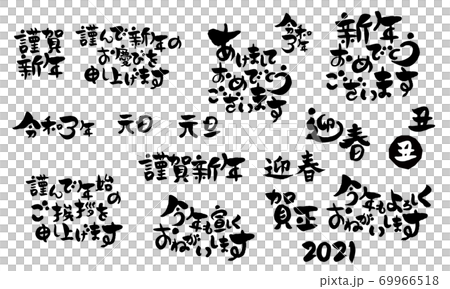 謹賀
新年
謹んで新年の
お慶びを
申し上げます
あけまして
おめでとう
ございます
令和
3年
新年
おめでとう
ございます
令和3年
元日
元旦
迎春
丑
丑
謹賀新年
迎春
謹んで年始の
ご挨拶を
申し上げます
今年も宜しく
おねがいします
賀正
今年もよろしく
おねがいします
2021
69966518